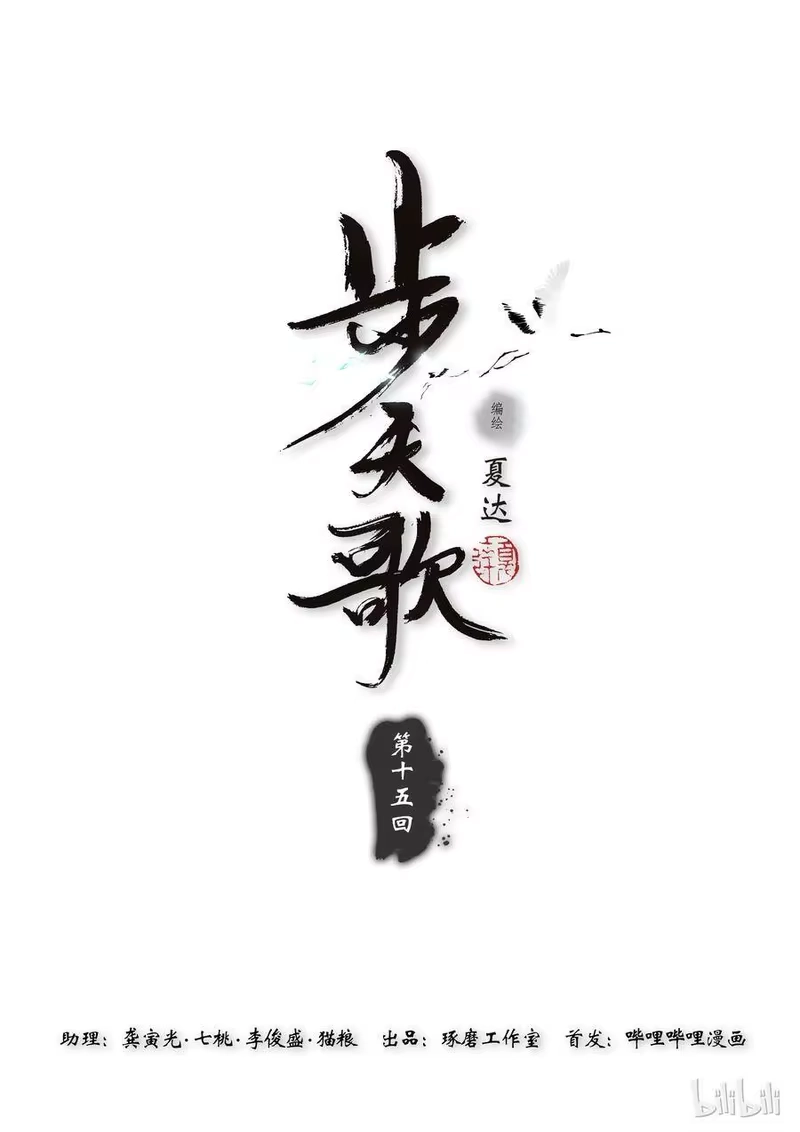 步天歌
编绘
夏达
第十五回
助理：龚寅光·七桃·李俊盛·猫粮 出品：琢磨工作室 首发：哔哩哔哩漫画
bilibili